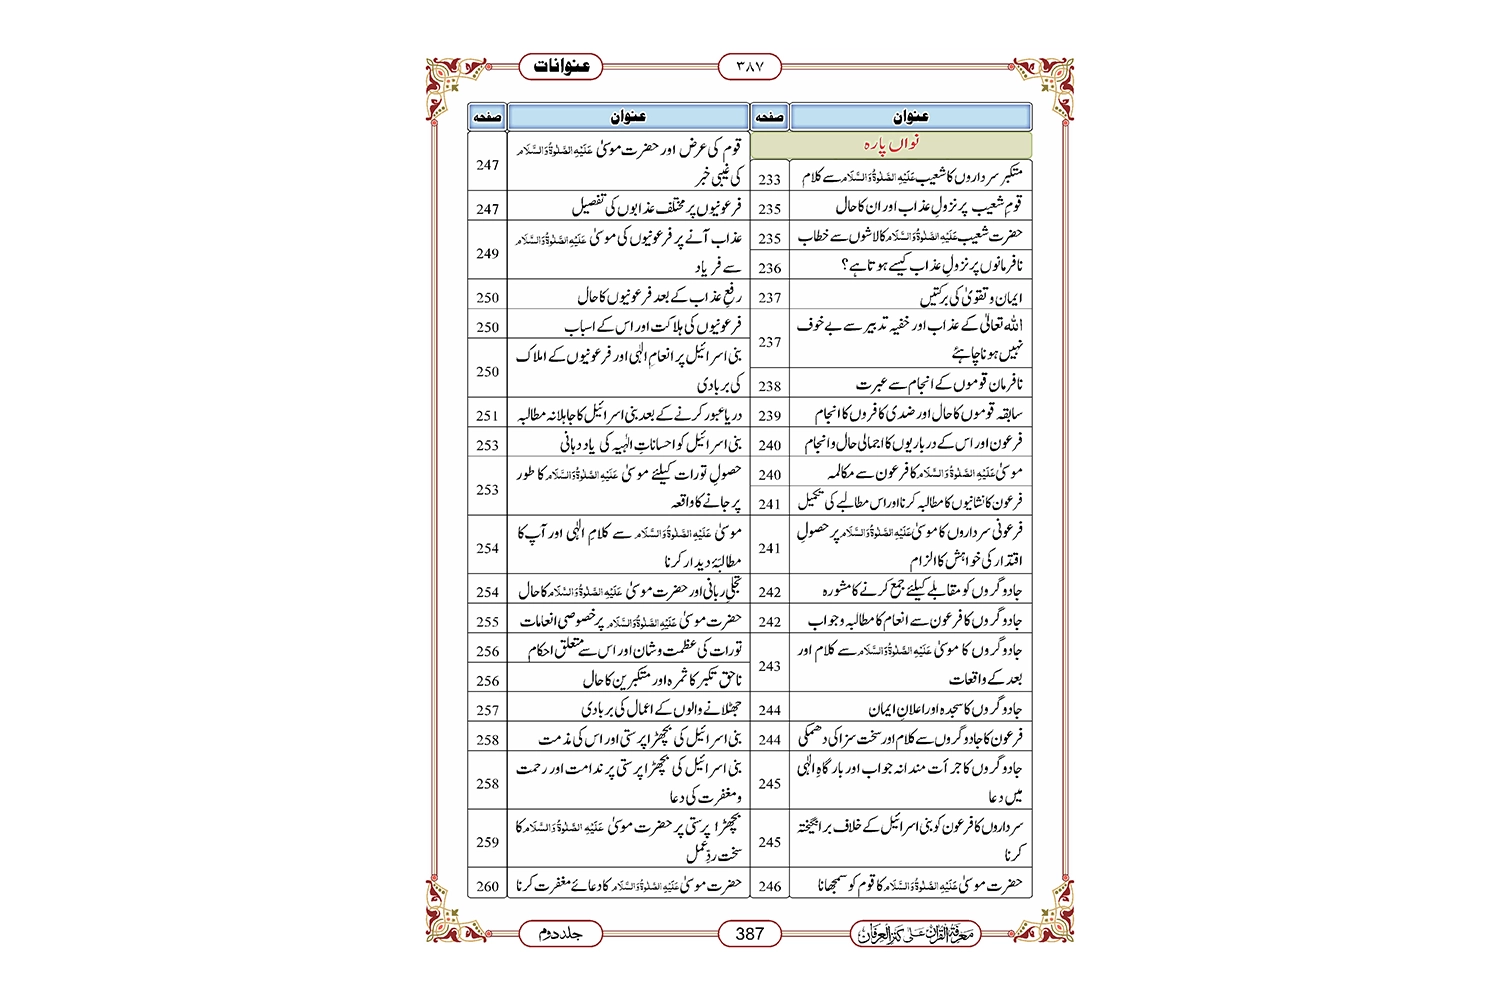 عنوانات
۳۸۷
عنوان
صفحہ
عنوان
صفحہ
نواں پارہ
متکبر سرداروں کا شعیب عَلَيْهِ الصَّلٰوةُ وَالسَّلَام سے کلام
233
قومِ شعیب پر نزولِ عذاب اور ان کا حال
235
حضرت شعیب عَلَيْهِ الصَّلٰوةُ وَالسَّلَام کا لاشوں سے خطاب
235
نافرمانوں پر نزولِ عذاب کیسے ہوتا ہے؟
236
ایمان و تقویٰ کی برکتیں
237
اللہ تعالیٰ کے عذاب اور خفیہ تدبیر سے بے خوف
نہیں ہونا چاہئے
237
نافرمان قوموں کے انجام سے عبرت
238
سابقہ قوموں کا حال اور ضدی کافروں کا انجام
239
فرعون اور اس کے درباریوں کا اجمالی حال و انجام
240
موسیٰ عَلَيْهِ الصَّلٰوةُ وَالسَّلَام کا فرعون سے مکالمہ
240
فرعون کا نشانیوں کا مطالبہ کرنا اور اس مطالبے کی تکمیل
241
فرعونی سرداروں کا موسیٰ عَلَيْهِ الصَّلٰوةُ وَالسَّلَام پر حصولِ
اقتدار کی خواہش کا الزام
241
جادوگروں کو مقابلے کیلئے جمع کرنے کا مشورہ
242
جادوگروں کا فرعون سے انعام کا مطالبہ و جواب
242
جادوگروں کا موسیٰ عَلَيْهِ الصَّلٰوةُ وَالسَّلَام سے کلام اور
بعد کے واقعات
243
جادوگروں کا سجدہ اور اعلانِ ایمان
244
فرعون کا جادوگروں سے کلام اور سخت سزا کی دھمکی
244
جادوگروں کا جرأت مندانہ جواب اور بارگاہِ الٰہی
میں دعا
245
سرداروں کا فرعون کو بنی اسرائیل کے خلاف برانگیختہ
کرنا
245
حضرت موسیٰ عَلَيْهِ الصَّلٰوةُ وَالسَّلَام کا قوم کو سمجھانا
246
قوم کی عرض اور حضرت موسیٰ عَلَيْهِ الصَّلٰوةُ وَالسَّلَام
کی غیبی خبر
247
فرعونیوں پر مختلف عذابوں کی تفصیل
247
عذاب آنے پر فرعونیوں کی موسیٰ عَلَيْهِ الصَّلٰوةُ وَالسَّلَام
سے فریاد
249
رفعِ عذاب کے بعد فرعونیوں کا حال
250
فرعونیوں کی ہلاکت اور اس کے اسباب
250
بنی اسرائیل پر انعامِ الٰہی اور فرعونیوں کے املاک
کی بربادی
250
دریا عبور کرنے کے بعد بنی اسرائیل کا جاہلانہ مطالبہ
251
بنی اسرائیل کو احساناتِ الٰہیہ کی یاد دہانی
253
حصولِ تورات کیلئے موسیٰ عَلَيْهِ الصَّلٰوةُ وَالسَّلَام کا طور
پر جانے کا واقعہ
253
موسیٰ عَلَيْهِ الصَّلٰوةُ وَالسَّلَام سے کلامِ الٰہی اور آپ کا
مطالبۂ دیدار کرنا
254
تجلیِ ربانی اور حضرت موسیٰ عَلَيْهِ الصَّلٰوةُ وَالسَّلَام کا حال
254
حضرت موسیٰ عَلَيْهِ الصَّلٰوةُ وَالسَّلَام پر خصوصی انعامات
255
تورات کی عظمت و شان اور اس سے متعلق احکام
256
ناحق تکبر کا ثمرہ اور متکبرین کا حال
256
جھٹلانے والوں کے اعمال کی بربادی
257
بنی اسرائیل کی بچھڑا پرستی اور اس کی مذمت
258
بنی اسرائیل کی بچھڑا پرستی پر ندامت اور رحمت
و مغفرت کی دعا
258
بچھڑا پرستی پر حضرت موسیٰ عَلَيْهِ الصَّلٰوةُ وَالسَّلَام کا
سخت ردِّ عمل
259
حضرت موسیٰ عَلَيْهِ الصَّلٰوةُ وَالسَّلَام کا دعائے مغفرت کرنا
260
معرفۃ القرآن علیٰ کنز العرفان
387
جلد دوم